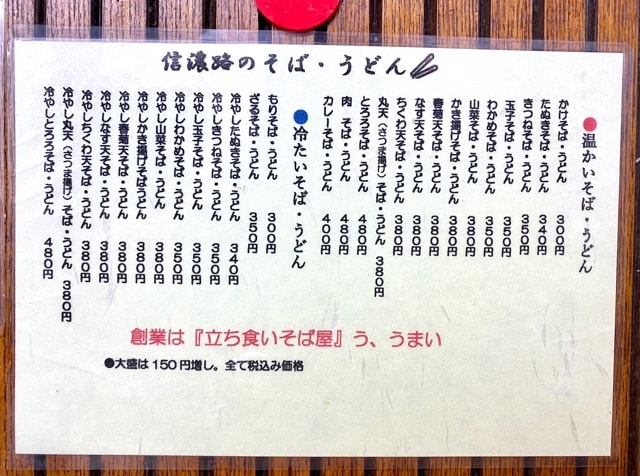 信濃路のそば・うどん
●温かいそば・うどん
かけそば・うどん 300円
たぬきそば・うどん 340円
きつねそば・うどん 350円
玉子そば・うどん 350円
わかめそば・うどん 350円
山菜そば・うどん 380円
かき揚げそば・うどん 380円
春菊天そば・うどん 380円
なす天そば・うどん 380円
ちくわ天そば・うどん 380円
丸天(さつま揚げ)そば・うどん 380円
とろろそば・うどん 480円
肉 そば・うどん 480円
カレーそば・うどん 400円
●冷たいそば・うどん
もりそば・うどん 300円
ざるそば・うどん 350円
冷やしたぬきそば・うどん 340円
冷やしきつねそば・うどん 350円
冷やし玉子そば・うどん 350円
冷やしわかめそば・うどん 350円
冷やし山菜そば・うどん 380円
冷やしかき揚げそばうどん 380円
冷やし春菊天そば・うどん 380円
冷やしなす天そば・うどん 380円
冷やしちくわ天そば・うどん 380円
冷やし丸天(さつま揚げ)そば・うどん 380円
冷やしとろろそば・うどん 480円
創業は『立ち食いそば屋』う、うまい
●大盛は150円増し。全て税込み価格